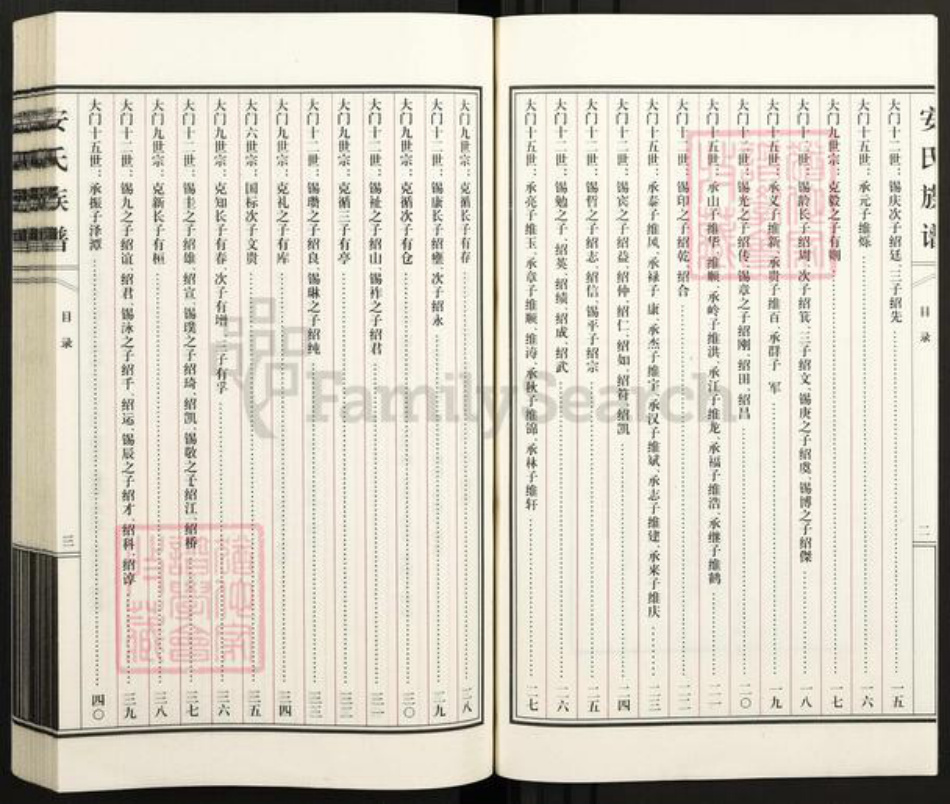 安氏族谱
目录
二
大门十二世：锡庆次子绍廷、三子绍先 一五
大门十五世：承元子维烁 一六
大门九世宗：克毅之子有则 一七
大门十二世：锡龄长子绍周、次子绍箕、三子绍文、锡庚之子绍虞、锡博之子绍傑 一八
大门十五世：承文子维新、承贵子维百、承群子 军 一九
大门十二世：锡光之子绍传、锡章之子绍刚、绍田、绍昌 二〇
大门十五世：承山子维华、维顺、承岭子维洪、承江子维龙、承福子维浩、承继子维鹤 二一
大门十二世：锡印之子绍乾、绍合 二二
大门十五世：承泰子维风、承禄子 康、承杰子维宝、承汉子维斌、承志子维建、承来子维庆 二三
大门十二世：锡宾之子绍益、绍仲、绍仁、绍如、绍符、绍凯 二四
大门十二世：锡哲之子绍志、绍信、锡平子绍宗 二五
大门十二世：锡勉之子、绍英、绍绩、绍成、绍武 二六
大门十五世：承亮子维玉、承章子维顺、维涛、承秋子维锦、承林子维轩 二七
大门九世宗：克循长子有存 二八
大门十二世：锡康长子绍雍、次子绍永 二九
大门九世宗：克循次子有仓 三〇
大门十二世：锡祉之子绍山、锡祚之子绍君 三一
大门九世宗：克循三子有亭 三二
大门十二世：锡瓒之子绍良、锡琳之子绍纯 三三
大门九世宗：克礼之子有库 三四
大门六世宗：国标次子文贵 三五
大门九世宗：克知长子有春、次子有增、三子有孚 三六
大门十二世：锡圭之子绍雄、绍宣、锡璞之子绍琦、绍凯、锡敬之子绍江、绍桥 三七
大门九世宗：克新长子有桓 三八
大门十二世：锡九之子绍谊、绍君、锡泳之子绍千、绍运、锡辰之子绍才、绍科、绍谆 三九
大门十五世：承振子泽潭 四〇
安氏族谱
目录
三
FamilySearch